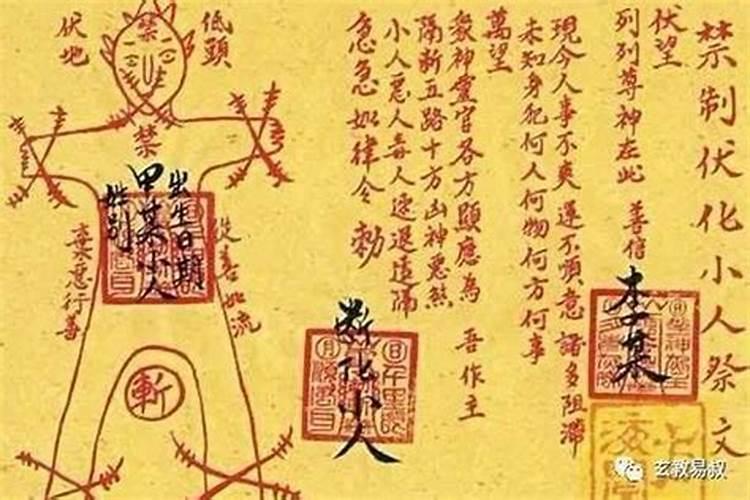 禁制伏化小人祭文
伏望
列列尊神在此 善信
李某
現今人事不爽運不順意諸多阻滯
未知身犯何人何物何方何事
萬望
衆神靈官各方顯應為 吾作主
隔断五路十方凶神惡煞
小人惡人毒人速退遠隔
急急如律令 勅
断化小人
低頭
禁
伏地
禁
出生日期
甲某小人
姓别
從善如流
棄惡行善
斬
玄教易叔